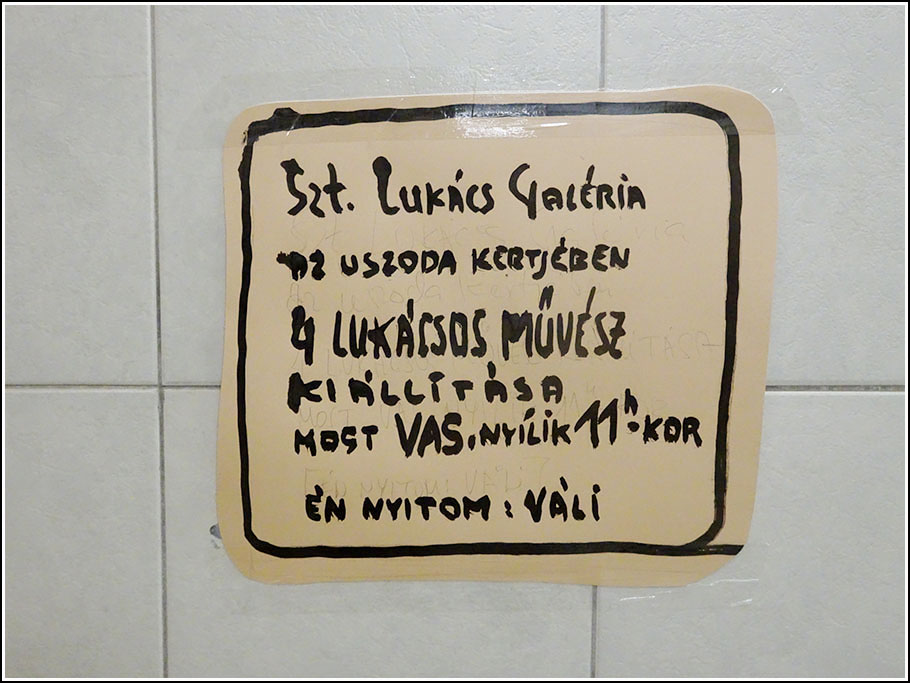 Szt. Lukács Galéria
az uszoda kertjében
4 LUKÁCSOS MŰVÉSZ
KIÁLLÍTÁSA
MOST VAS. NYÍLIK 11h-KOR
ÉN NYITOM: VÁLI